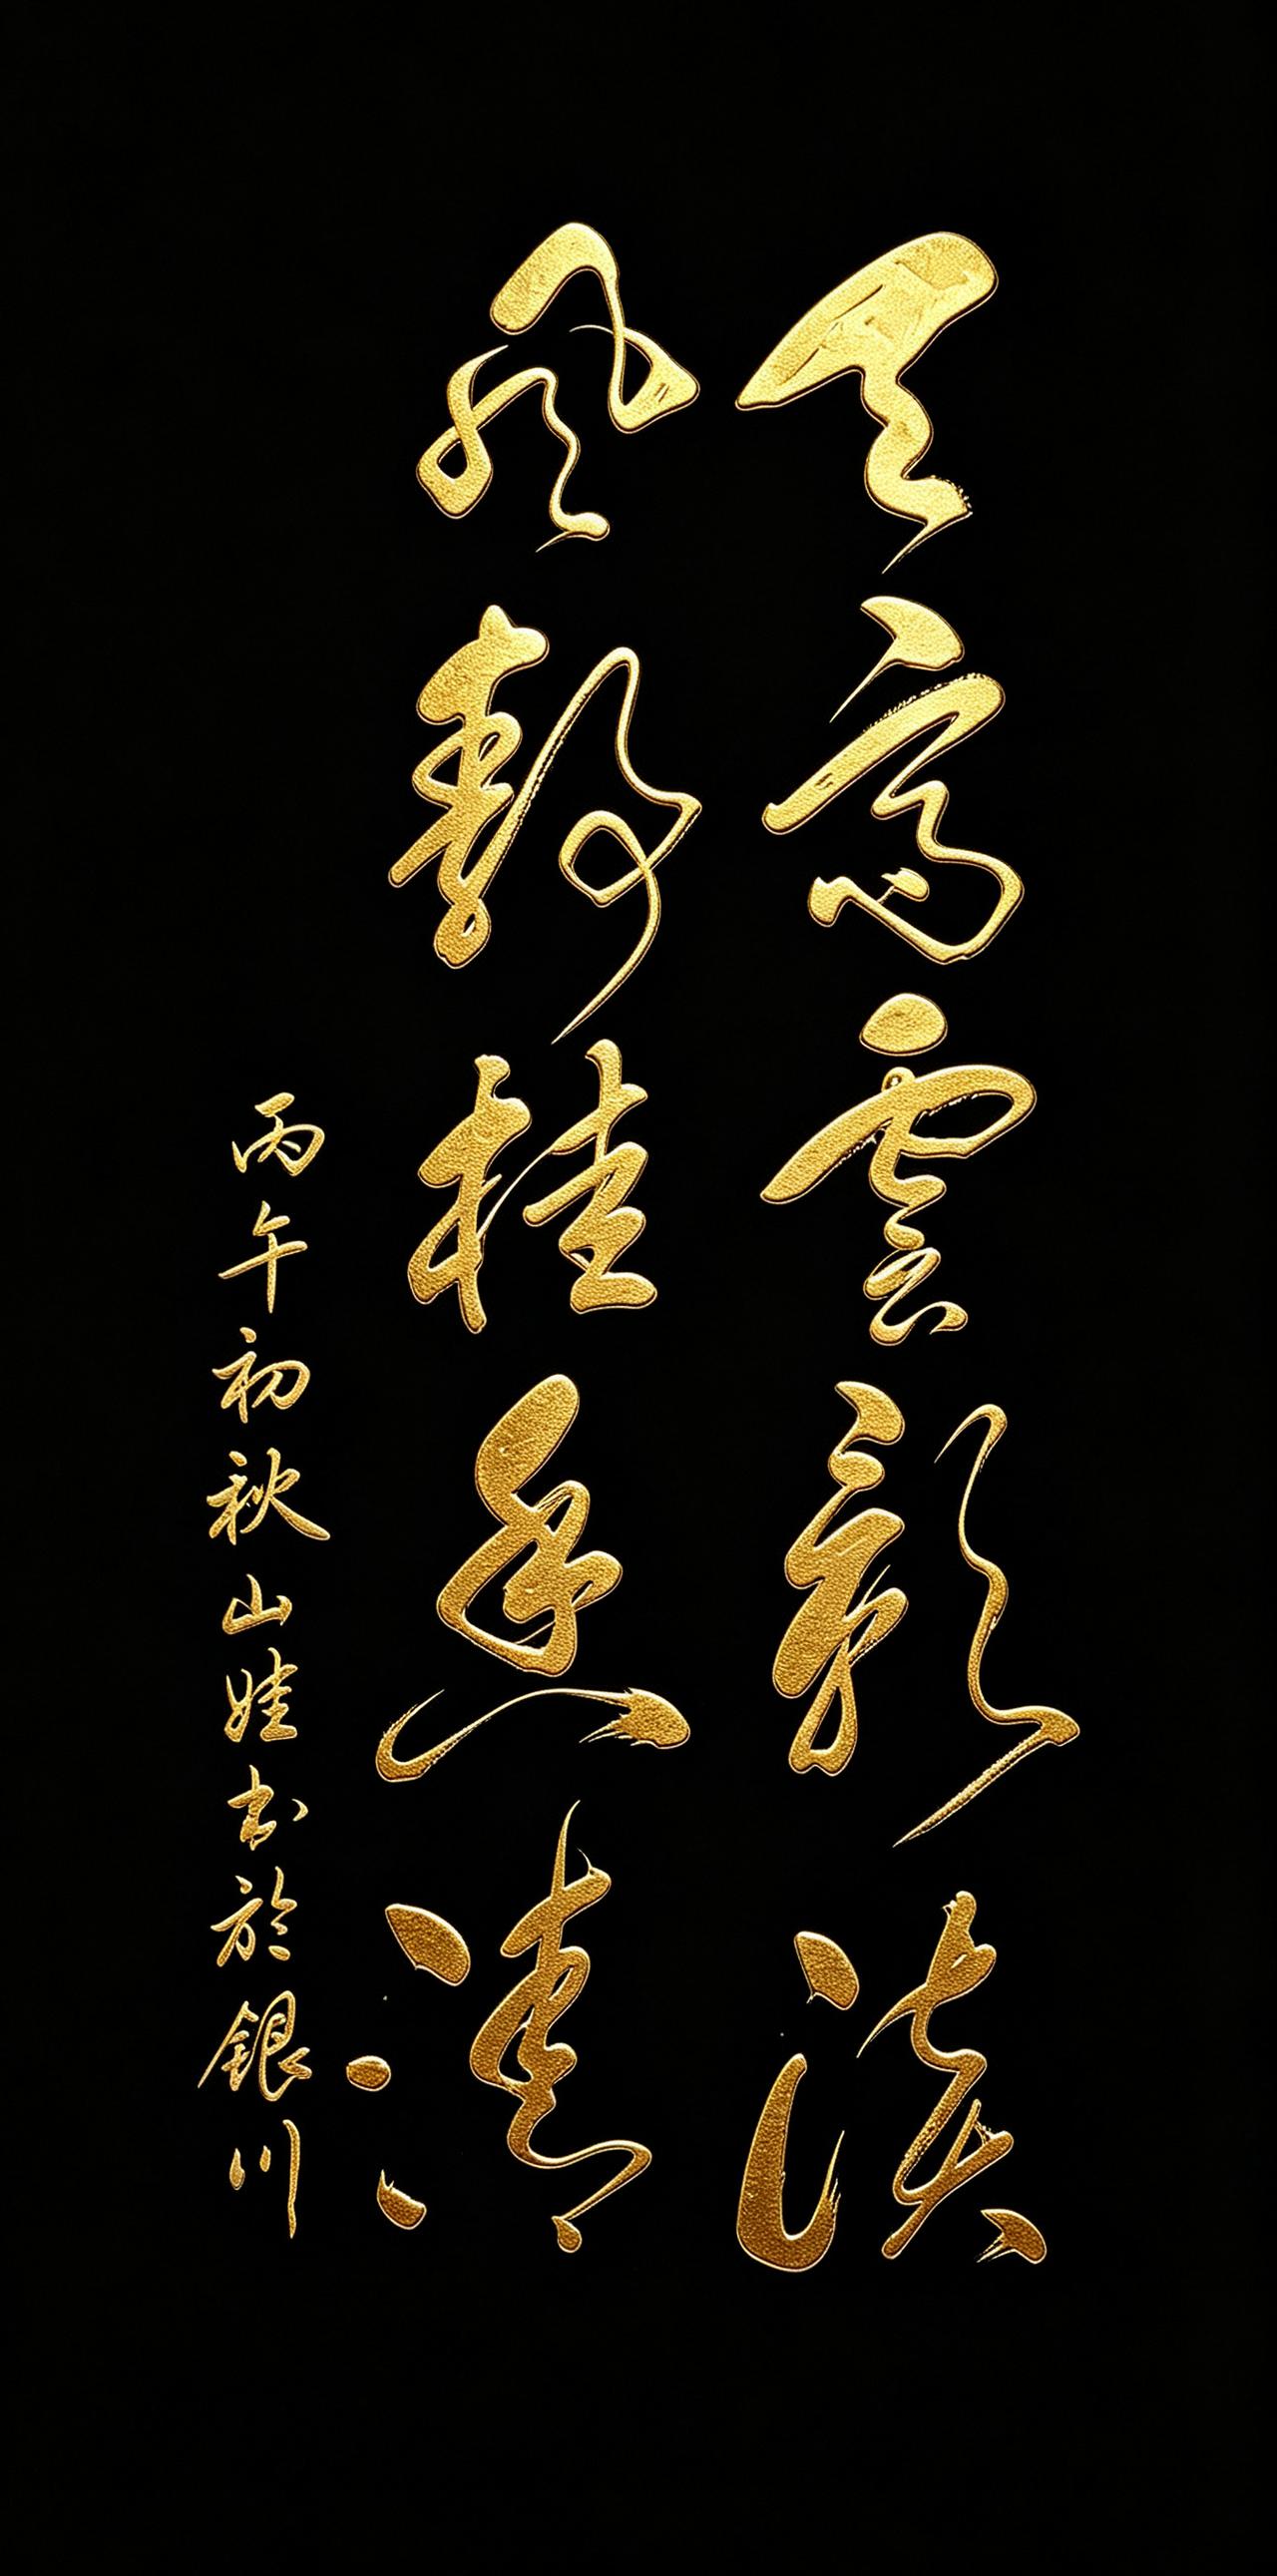 天高雲影淡
風靜桂香清
丙午初秋山娃书於銀川